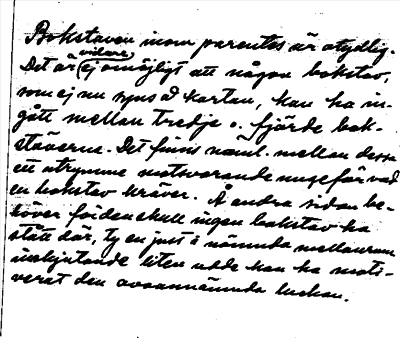 Bokstaven inom parentes är otydlig.
Det är (vidare) ej omöjligt att någon bokstav,
som ej nu syns å kartan, kan ha in-
gått mellan tredje o. fjärde bok-
stäverna. Det finns näml. mellan dessa
ett utrymme motsvarande ungefär vad
en bokstav kräver. Å andra sidan be-
höver för den skull ingen bokstav ha
stått där, ty en just i nämnda mellanrum
inskjutande liten udde kan ha moti-
verat den ovannämnda luckan.